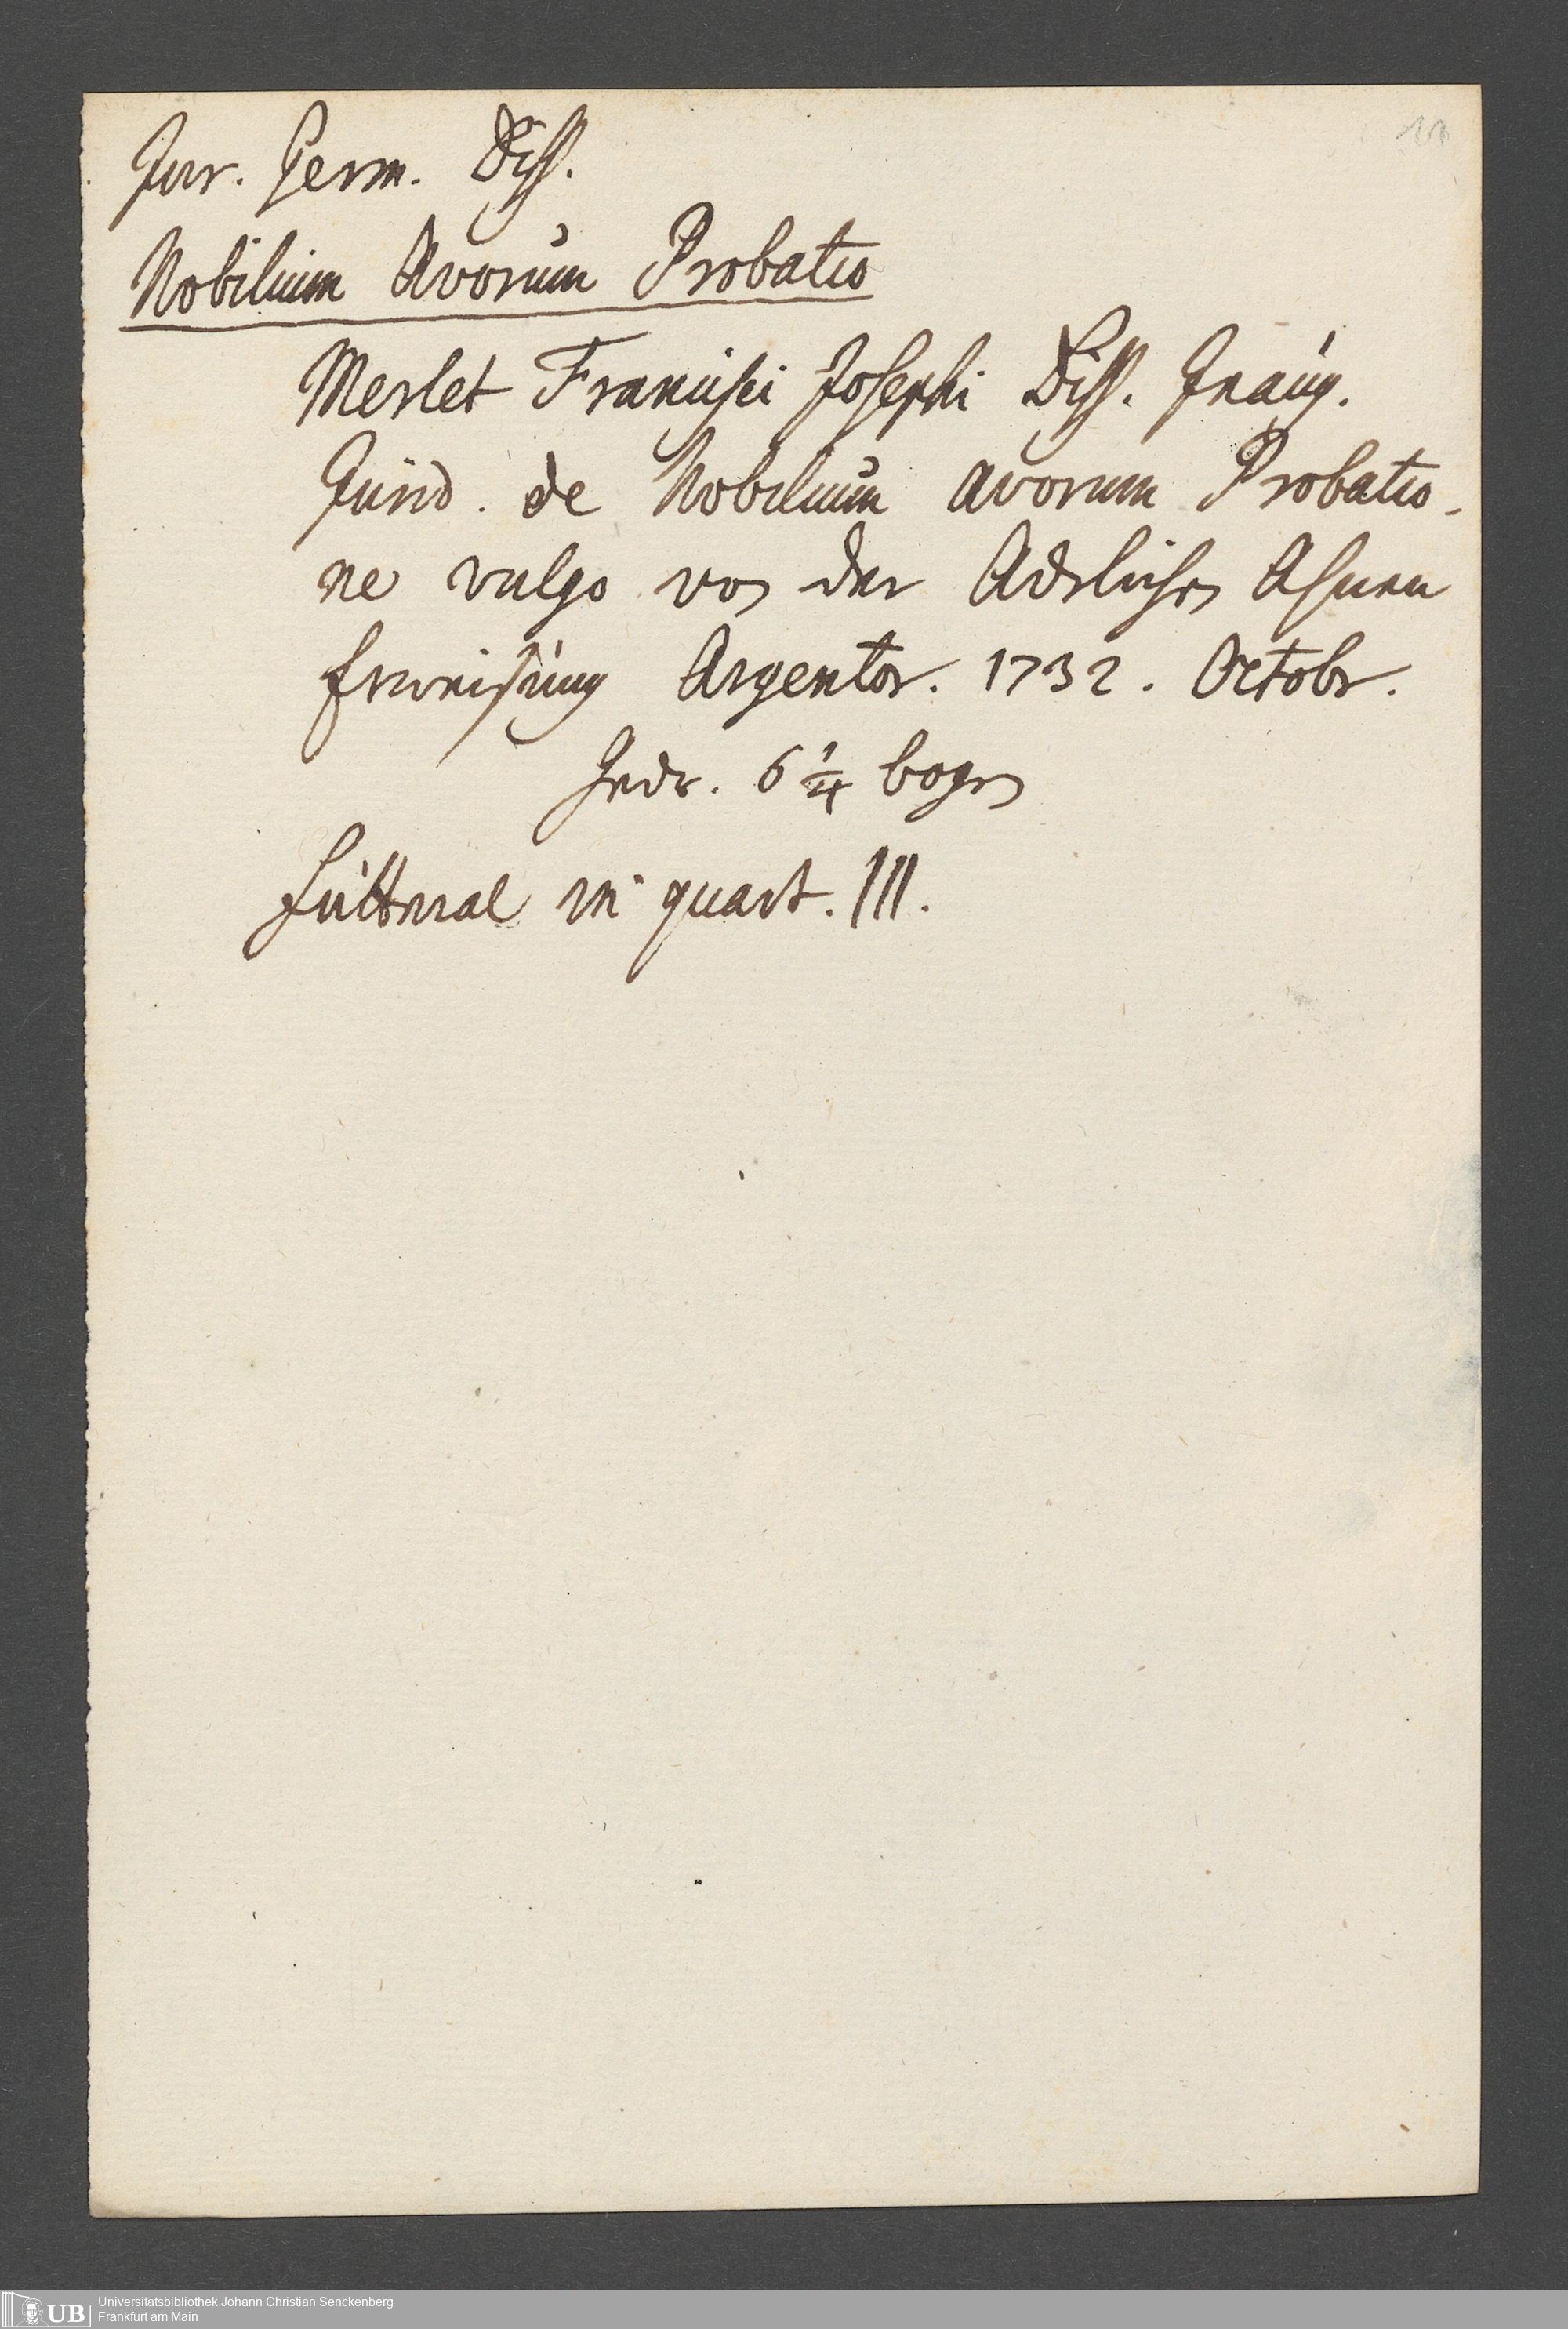 Jur. Germ. Diss.
Nobilium Avorum Probatio
Merlet Francisci Josephi Diss. Inaug.
Jurid. de Nobilium avorum Probatio-
ne vulgo von der Adelichen Ahnen
Erweisung Argentor. 1732. Octobr.
4 bogen
in quart. III.
Universitätsbibliothek Johann Christian Senckenberg
UB Frankfurt am Main